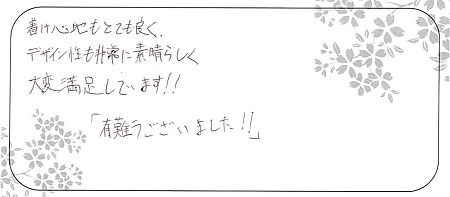 着け心地もとても良く、
デザイン性も非常に素晴らしく
大変満足しています!!
「有難うございました!!」